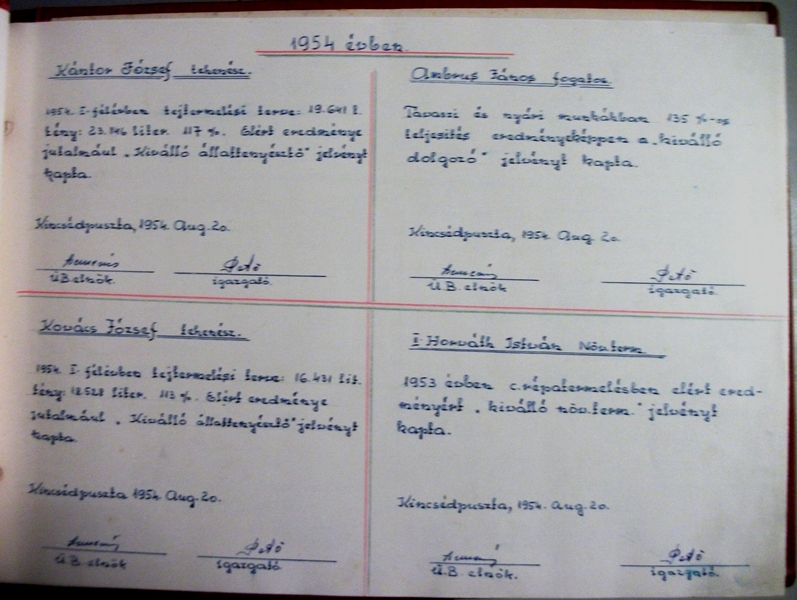 1954 évben.
Kántor József tehenész.
1954. I. félévben tejtermelési terve: 19.641 l.
tény: 23.146 liter. 117 %. Elért eredménye
jutalmául "Kiválló állattenyésztő" jelvényt
kapta.
Kincsédpuszta, 1954 Aug. 20.
Ü.B. elnök.
igazgató.
Ambrus János fogatos.
Tavaszi és nyári munkákban 135 %-os
teljesítés eredményeképpen a "kiválló
dolgozó" jelvényt kapta.
Kincsédpuszta, 1954. Aug. 20.
Ü.B. elnök
igazgató.
Kovács József tehenész.
1954. I. félévben tejtermelési terve: 16.431 lit.
tény: 18.528 liter. 113 %. Elért eredménye
jutalmául "Kiválló állattenyésztő" jelvényt
kapta.
Kincsédpuszta 1954. Aug. 20.
Ü.B. elnök
igazgató.
I. Horváth István Növ.term.
1953 évben c.répatermelésben elért ered-
ményért "kiválló növ.term." jelvényt
kapta.
Kincsédpuszta, 1954. Aug. 20.
Ü.B. elnök.
igazgató.